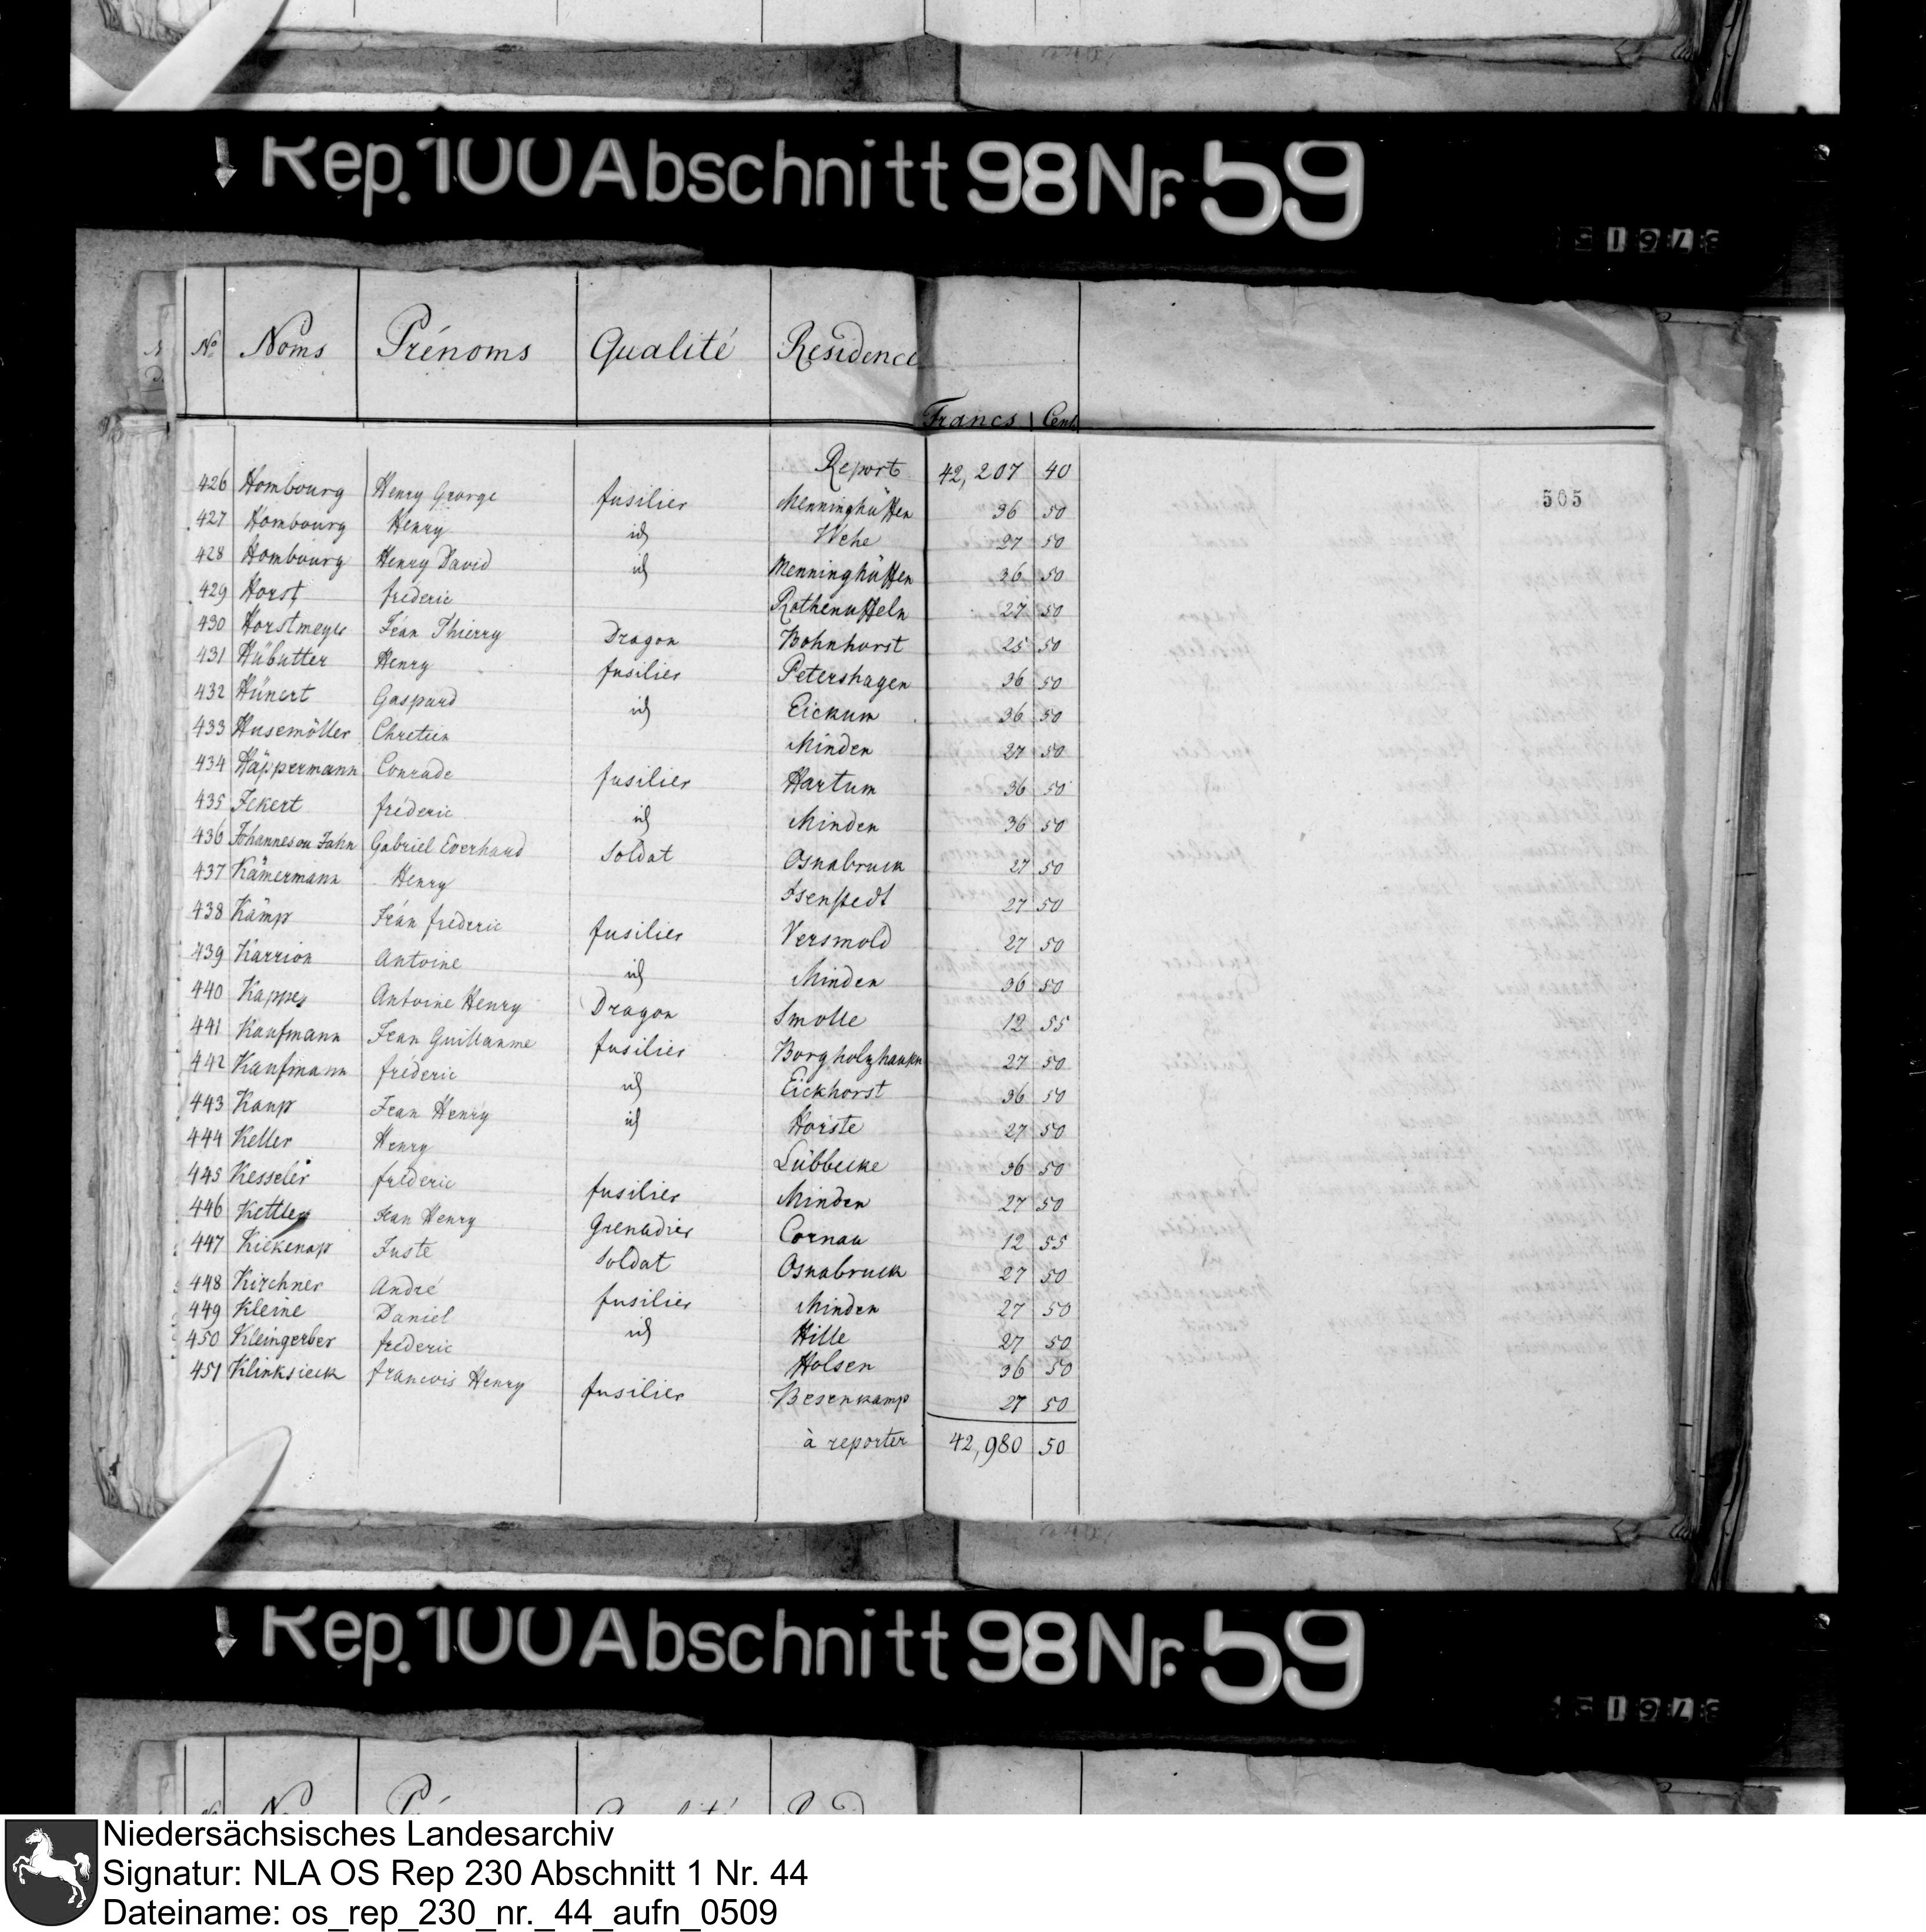 Rep. 100 Abschnitt 98 Nr. 59
No Noms Prénoms Qualité Residence
Francs Cent
Report 42,207 40
505
426 Hombourg Henry George fusilier Menninghüffen 36 50
427 Hombourg Henry id Wehe 27 50
428 Hombourg Henry David id Menninghüffen 36 50
429 Horst fréderic Rothenuffeln 27 50
430 Horstmeyer Jéan Thierry Dragon Bohnhorst 25 50
431 Hübutter Henry fusilier Petershagen 36 50
432 Hünert Gaspard id Eickum 36 50
433 Husemöller Chretien Minden 27 50
434 Häppermann Conrade fusilier Hartum 36 50
435 Ickert fréderic id Minden 36 50
436 Johannes ou Jahn Gabriel Everhard Soldat Osnabruck 27 50
437 Kämermann Henry Isenstedt 27 50
438 Kämp Jéan fréderic fusilier Versmold 27 50
439 Karrion Antoine id Minden 36 50
440 Kappes Antoine Henry Dragon Smolle 12 55
441 Kaufmann Jean Guillaume fusilier Borgholzhausen 27 50
442 Kaufmann fréderic id Eickhorst 36 50
443 Kaup Jean Henry id Horste 27 50
444 Keller Henry Lübbecke 36 50
445 Kesseler fréderic fusilier Minden 27 50
446 Kettler Jean Henry Grenadier Cornau 12 55
447 Kiekenap Juste Soldat Osnabruck 27 50
448 Kirchner André fusilier Minden 27 50
449 Kleine Daniel id Hille 27 50
450 Kleingerber fréderic Holsen 36 50
451 Klinksieck francois Henry fusilier Besenkamp 27 50
à reporter 42,980 50
Rep. 100 Abschnitt 98 Nr. 59
Niedersächsisches Landesarchiv
Signatur: NLA OS Rep 230 Abschnitt 1 Nr. 44
Dateiname: os_rep_230_nr._44_aufn_0509